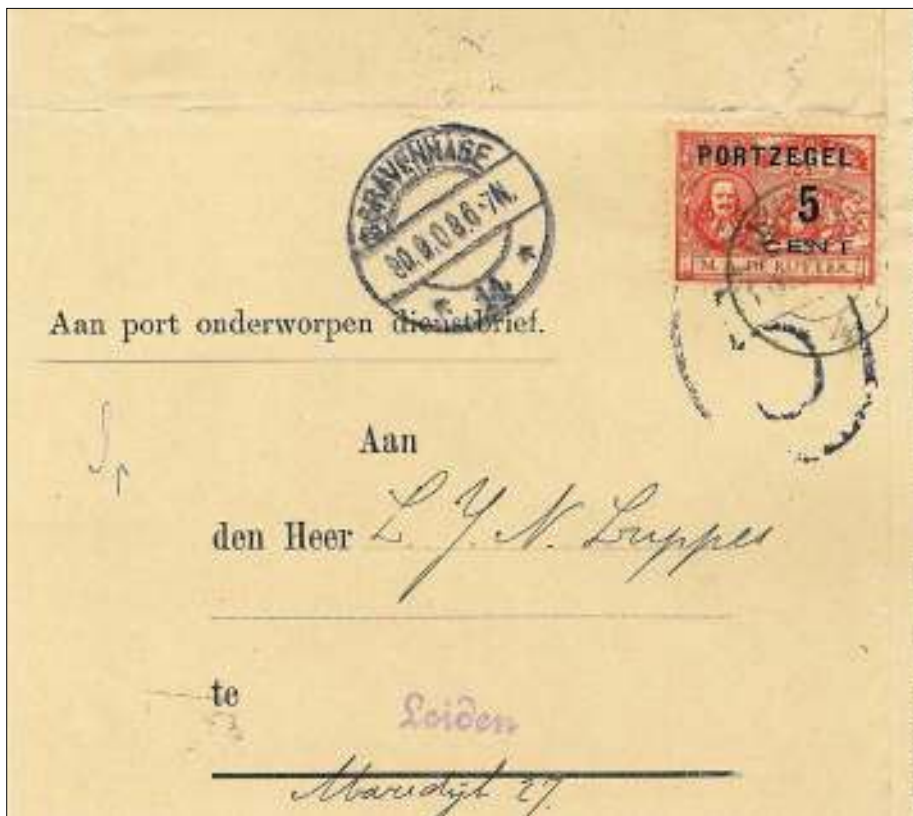 'S GRAVENHAGE
30.9.08.6-7N.
14
PORTZEGEL
5
CENT
M. A. DE RUYTER.
Aan port onderworpen dienstbrief.
5
Aan
den Heer L. J. N. Luppes
te Leiden
Maredijk 27.